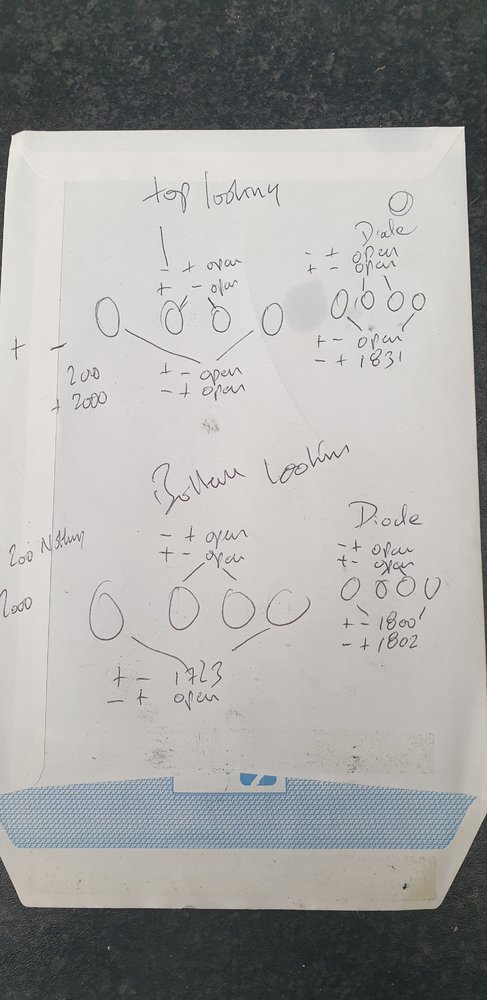 top looking
Diode
- + open
+ - open
- + open
+ - open
+ -
200
+ 2000
+ - open
- + open
+ - open
- + 1831
Bottom Looking
Diode
200 Nothing
2000
- + open
+ - open
- + open
+ - open
+ - 1723
- + open
+ - 1800
- + 1802